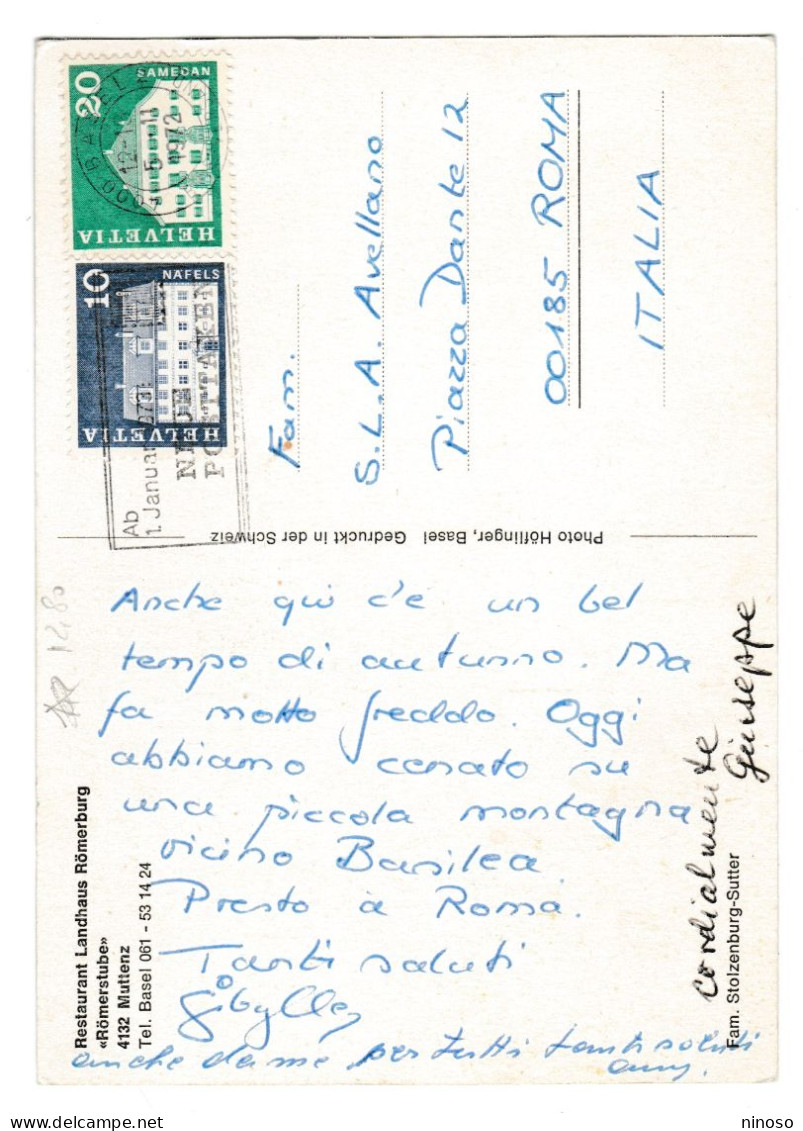 SAMEDAN
20
HELVETIA
BASEL
5 11 1972
NÄFELS
10
HELVETIA
Ab
1. Januar
NEUE
POSTTAXEN
Fam.
S.L.A. Avellano
Piazza Dante 12
00185 ROMA
ITALIA
Photo Höflinger, Basel Gedruckt in der Schweiz
12,80
Anche quì c'è un bel
tempo di autunno. Ma
fa molto freddo. Oggi
abbiamo cenato su
una piccola montagna
vicino Basilea.
Presto a Roma.
Tanti saluti
Sibylle
anche da me per tutti tanti saluti
cordialmente
Giuseppe
Restaurant Landhaus Römerburg
«Römerstube»
4132 Muttenz
Tel. Basel 061 - 53 14 24
Fam. Stolzenburg-Sutter
ninoso